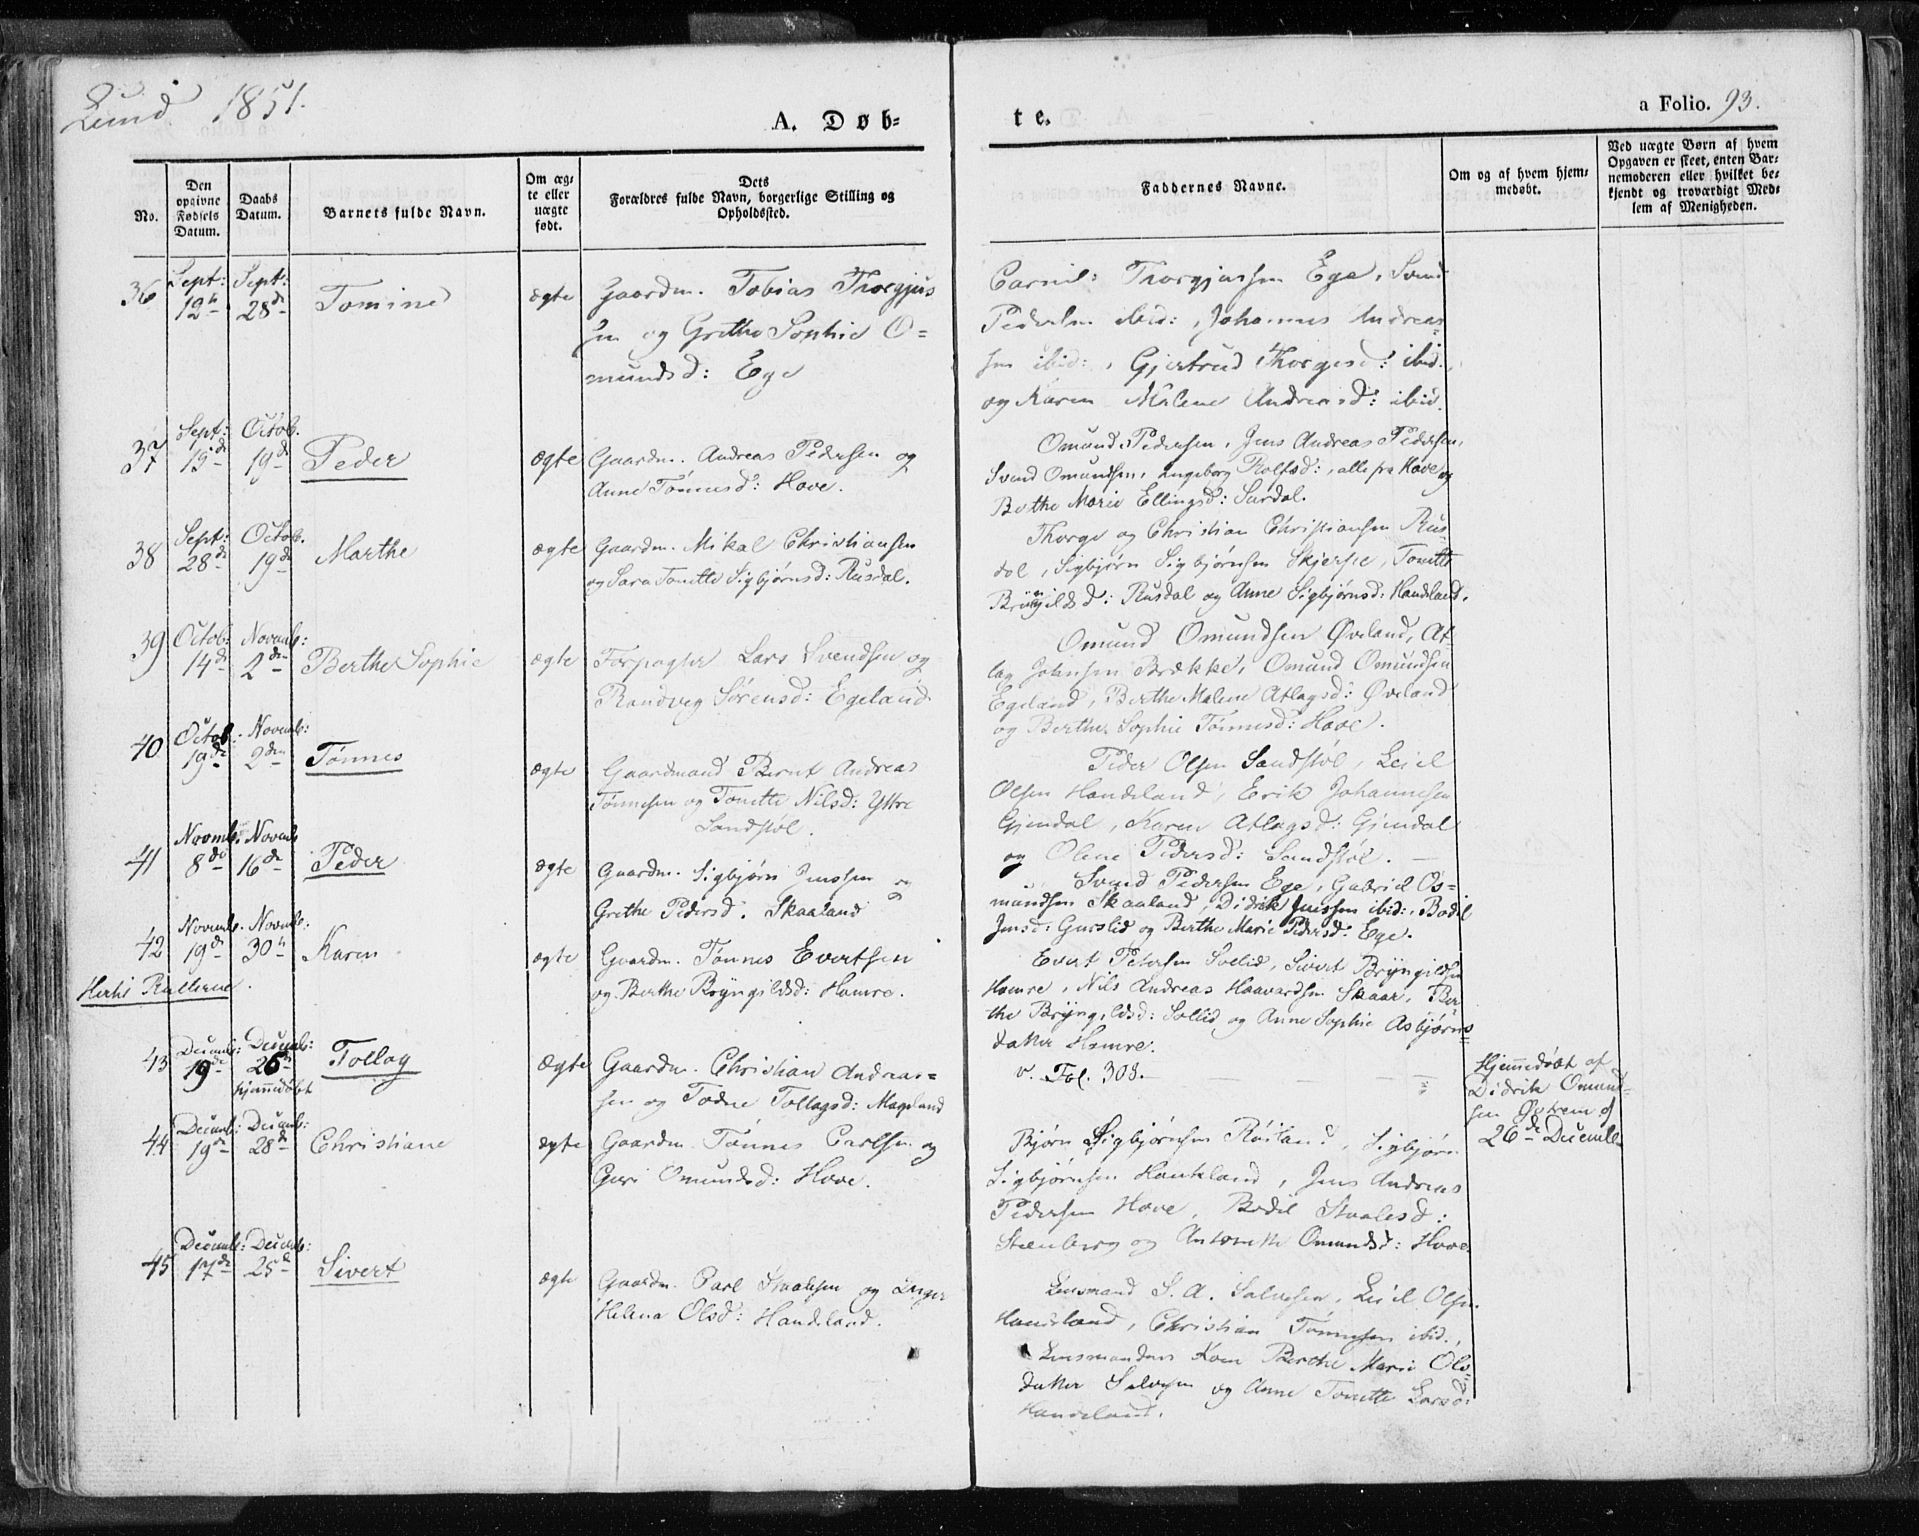 Lund 1851.
A. Døb-
te.
a Folio. 93.
No.
Den opgivne Fødsels Datum.
Daabs Datum.
Barnets fulde Navn.
Om ægte eller uægte født.
Dets Forældres fulde Navn, borgerlige Stilling og Opholdssted.
Faddernes Navne.
Om og af hvem hjemmedøbt.
Ved uægte Børn af hvem Opgaven er skeet, enten Barnemoderen eller hvilket bekjendt og troværdigt Medlem af Menigheden.
36 Sept: 12te Sept: 28de Tomine ægte Gaardm. Tobias Thorgjus
sen og Grethe Sophie O-
mundsd: Ege
Thorgjussen Ege, Svend
Pedersen ibid:, Johannes Andreas-
sen ibid:, Gjertrud Thorgesd: ibid.,
og Karen Malene Andreasd: ibid.
37 Sept: 19de Octob. 19de Peder ægte Gaardm. Andreas Pedersen og
Anne Tønnesd: Hove.
Omund Pedersen, Jens Andreas Pedersen,
Svend Omundsen, Ingeborg Rolfsd:, alle fra Hove og
Berthe Marie Ellingsd: Surdal.
38 Sept: 28de Octob. 19de Marthe ægte Gaardm. Mikal Christiansen
og Sara Tonette Sigbjørnsd: Rusdal.
Thorge og Christian Christiansen Rus-
dal, Sigbjørn Sigbjørnsen Skjerpe, Tonette
Brüngildsd: Rusdal og Anne Sigbjørnsd: Handeland.
39 Octob: 14de Novemb: 2den Berthe Sophie ægte Forpagter Lars Svendsen og
Randveg Sørensd: Egeland
Omund Omundsen Øveland, At-
lag Johnsen Brække, Omund Omundsen
Egeland, Berthe Malene Atlagsd: Øveland
og Berthe Sophie Tønnesd: Hove.
40 Octob: 19de Novemb: 2den Tønnes ægte Gaardmand Bernt Andreas
Tønnesen og Tonette Nilsd: Yttre
Sandstøl.
Peder Olsen Sandstøl, Leiel
Olsen Handeland, Erik Johannesen
Gjendal, Karen Atlagsd: Gjendal
og Olene Pedersd: Sandstøl. —
41 Novemb: 8de Novemb 16de Peder ægte Gaardm. Sigbjørn Jenssen og
Grethe Pedersd. Skaaland
Svend Pedersen Ege, Gabriel Os-
mundsen Skaaland, Didrik Jenssen ibid:, Bodil
Jensd: Gurslid og Berthe Marie Pedersd: Ege.
42 Novemb. 19de Novemb: 30te Karen ægte Gaardm. Tønnes Evertsen
og Berthe Brÿngildsd: Hamre.
Evert Petersen Sollid, Sivert Brÿngildsen
Hamre, Nils Andreas Haavardsen Skaar, Ber
the Brÿngildsd: Sollid og Anne Sophie Asbjørns
datter Hamre.
43 Decemb: 19de Decemb: 26de hjemmedøbt Tollag Ægte Gaardm. Christian Andreas-
sen og Todne Tollagsd: Mageland
v. Fol. 308. —
Hjemmedøbt af
Didrik Omund-
sen Østrem d
26de Decembr
44 Decemb: 19de Decemb: 28de Christiane ægte Gaardm. Tønnes Carlsen og
Guri Omundsd: Hove.
Bjørn Sigbjørnsen Røiland, Sigbjørn
Sigbjørnsen Haukland, Jens Andreas
Pedersen Hove, Bodil Staalesd:
Steenberg og Antonette Omundsd: Hove.
45 Decemb: 17de Decemb: 25de Sivert ægte Gaardm. Carl Staalesen og Inger
Helena Olsd: Handeland.
Lensmand S. A. Salvesen, Leiel Olsen
Handeland, Christian Tønnesen ibid.,
Lensmandens Kone Berthe Marie Ols-
datter Salvesen og Anne Tonette Larsd:
Handeland.